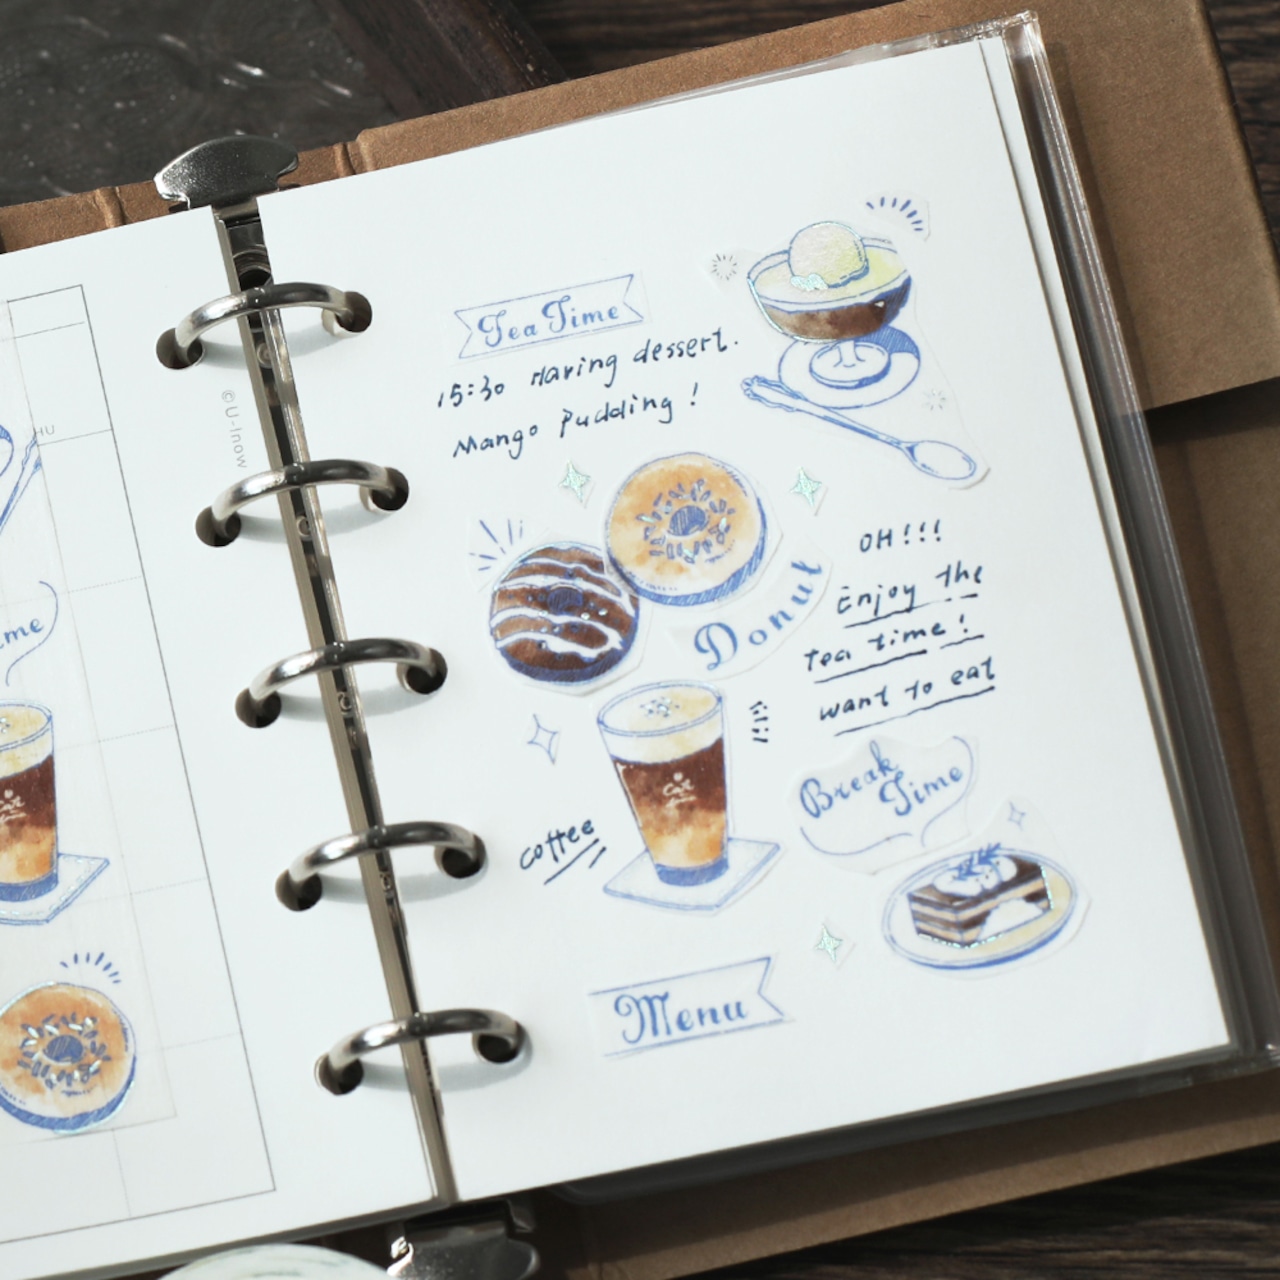 HU
me
Cafe
©U-Inow
Tea Time
15:30 Having dessert.
Mango Pudding!
Donut
OH!!!
Enjoy the
Tea time!
want to eat
Cafe
coffee
Break
Time
Menu